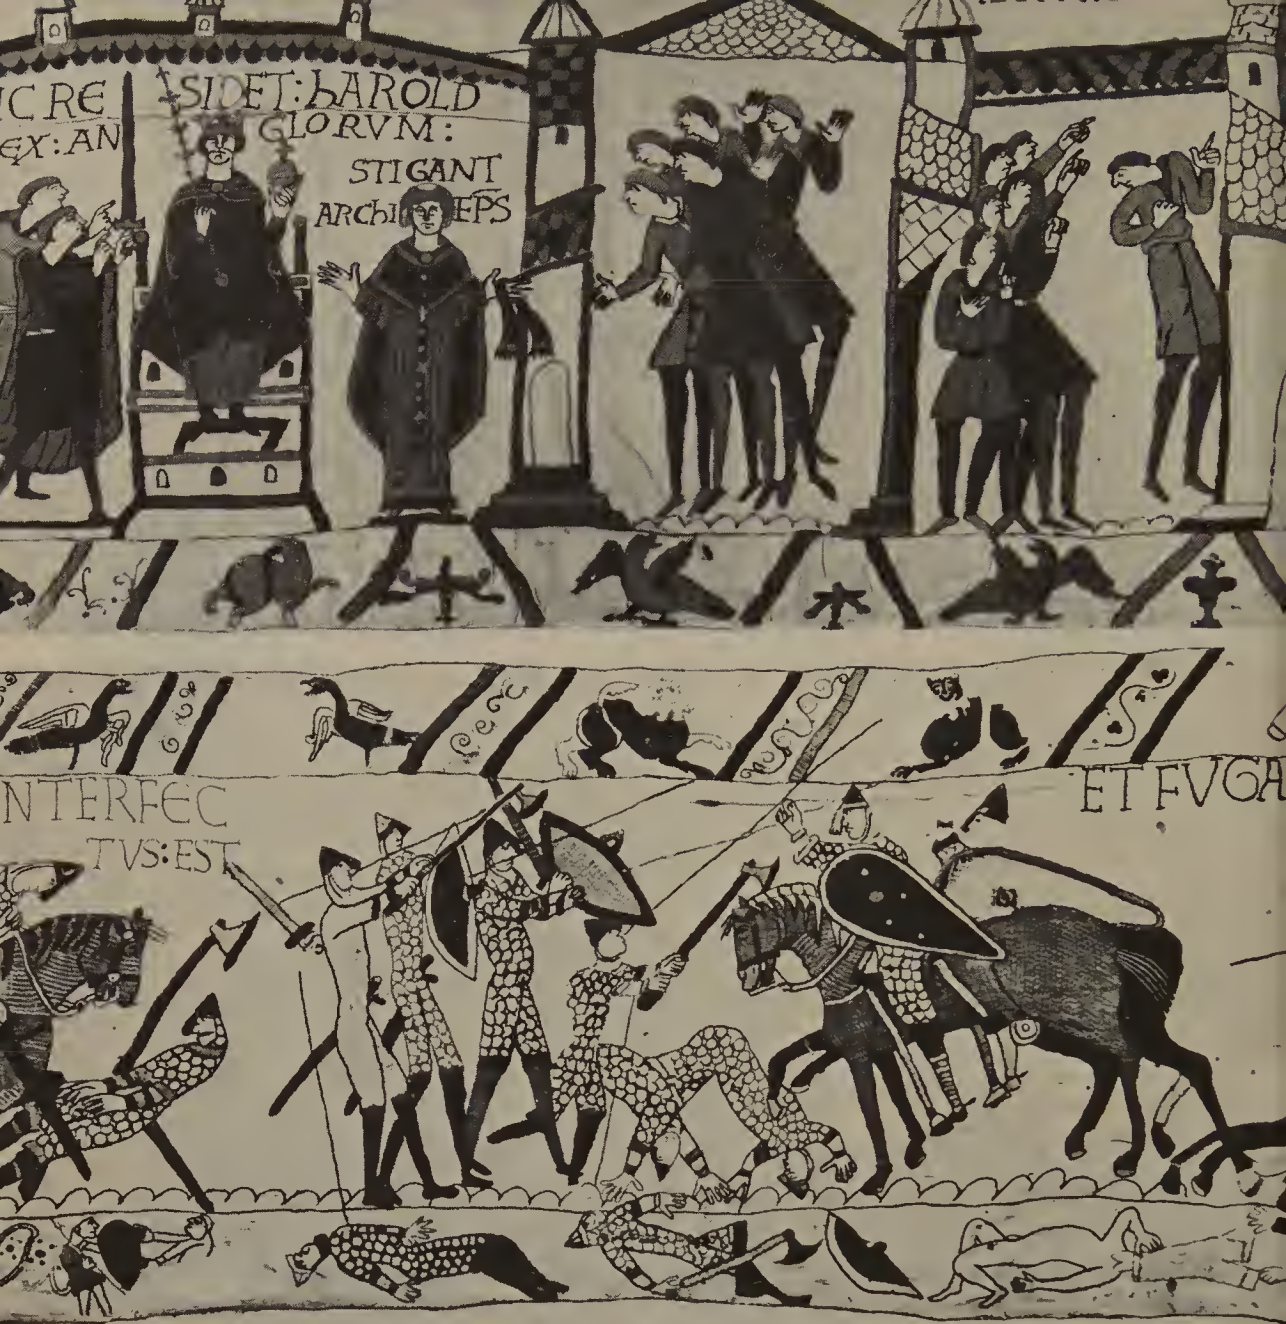 IC RE SIDET: hAROLD
EX: AN GLORVM:
STIGANT
ARChI EPS
NTERFEC
TVS: EST
ET FVGA